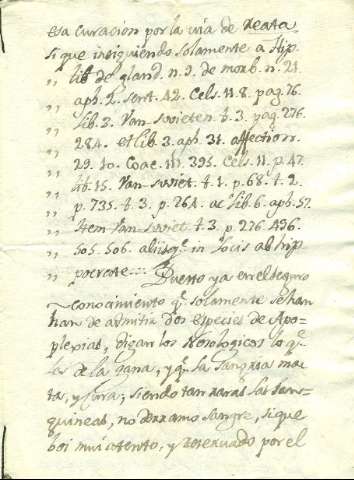 esa curacion por la via de Reata
si que insiguiendo solamente a Hip.
,, lib. de gland. n. 9. de morb. n. 21.
,, aph. 2. sect. 42. Cels. 11. 8. pag. 76.
,, lib. 3. Van-Svieten. t. 3. pag. 276.
,, 284. et lib. 3. aph. 31. affection.
,, 29. 10. Coac. 111. 395. Cels. 11. p. 47.
,, lib. 15. Van-Swiet. t. 1. p. 68. t. 2.
,, p. 735. t. 3. p. 264. ac lib. 6. aph. 57.
,, Item Van-Swiet. t. 3. p. 276. 496.
,, 505. 506. aliisq. in locis ab hip
,, pocrate
Puesto ya en el seguro
conocimiento q.e solamente se han
han de admitir dos especies de Apo-
plexias, digan los Neologicos lo q.e
les de la gana, y q.e la Sangria ma
ta, y cura; siendo tan raras las san-
guineas, no derramo sangre, si que
boi mui contento, y reservado por el